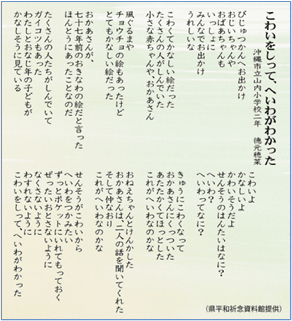 こわいをしって、へいわがわかった
沖縄市立山内小学校二年　徳元穂菜
びじゅつかんへお出かけ
おじいちゃんや
おばあちゃんも
いっしょに
みんなでお出かけ
うれしいな
こわくてかなしい絵だった
たくさんの人がしんでいた
小さな赤ちゃんや、おかあさん
風ぐるまや
チョウチョの絵もあったけど
とてもかなしい絵だった
おかあさんが、
七十七年前のおきなわの絵だと言った
ほんとうにあったことなのだ
たくさんの人たちがしんでいて
ガイコツもあった
わたしとおなじ年の子どもが
かなしそうに見ている
こわいよ
かなしいよ
かわいそうだよ
せんそうのはんたいはなに？
へいわ？
へいわってなに？
きゅうにこわくなって
おかあさんにくっついた
あたたかくてほっとした
これがへいわなのかな
おねえちゃんとけんかした
おかあさんは、二人の話を聞いてくれた
そして仲なおり
これがへいわなのかな
せんそうがこわいから
へいわをつかみたい
ずっとポケットにいれてもっておく
ぜったいおとさないように
なくさないように
わすれないように
こわいをしって、へいわがわかった
（県平和祈念資料館提供）